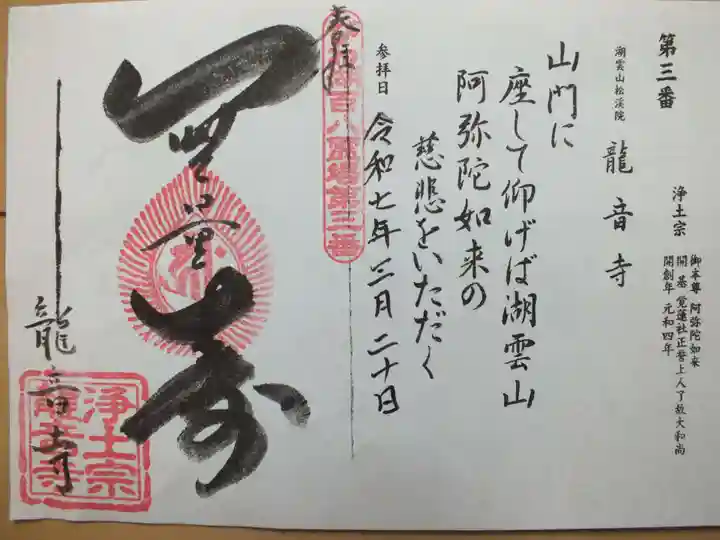 第三番
浄土宗
御本尊 阿弥陀如来
開基 覚蓮社正誉上人了故大和尚
開創年 元和四年
湖雲山松渓院
龍音寺
山門に
座して仰げば湖雲山
阿弥陀如来の
慈悲をいただく
参拝日
令和七年三月二十日
奉拝
無量寿
龍音寺
浄土宗
龍音寺